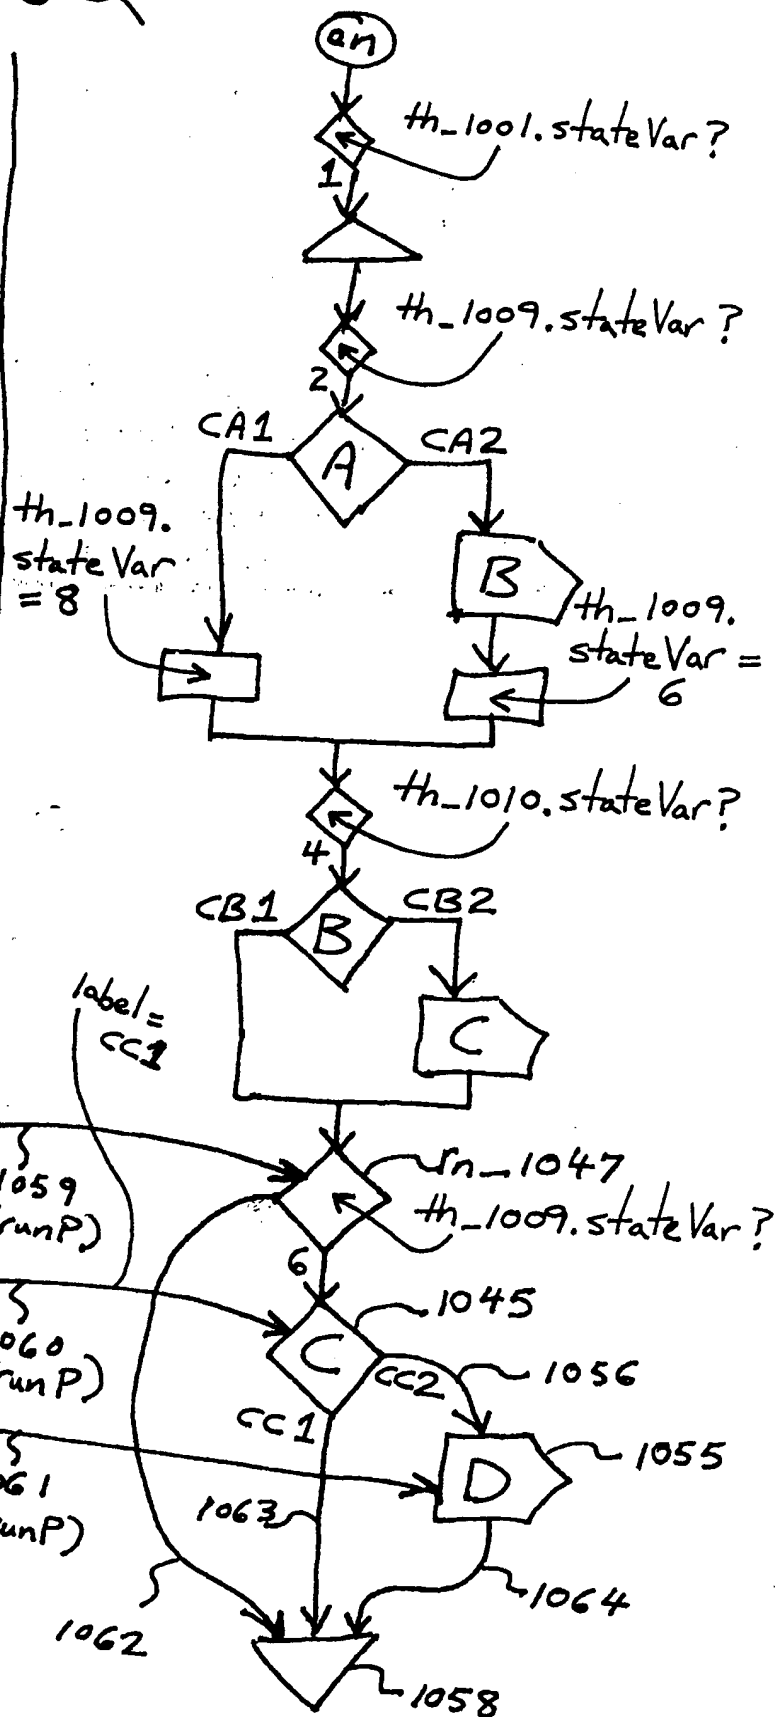 an
th_1001.stateVar?
1
th_1009.stateVar?
2
CA1
CA2
A
th_1009.
stateVar
= 8
B
th_1009.
stateVar =
6
th_1010.stateVar?
4
CB1
CB2
B
label=
CC1
C
rn_1047
1059
(runP)
th_1009.stateVar?
6
1045
060
runP)
C
CC2
1056
CC1
1055
D
061
unP)
1063
1064
1062
1058